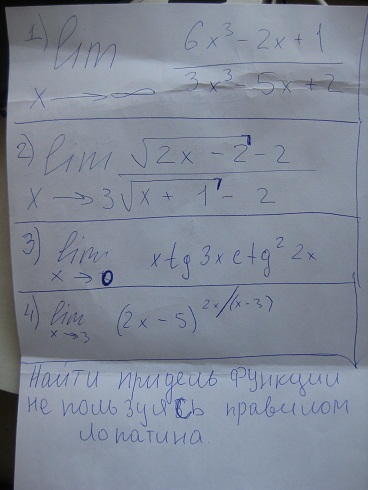 1) lim 6x³ - 2x + 1
x → ∞ 3x³ - 5x + 2
2) lim √2x - 2 - 2
x → 3 √x + 1 - 2
3) lim x tg 3x ctg² 2x
x → 0
4) lim (2x - 5)^2x/(x-3)
x → 3
Найти придель функции
не пользуясь правилом
лопатина.